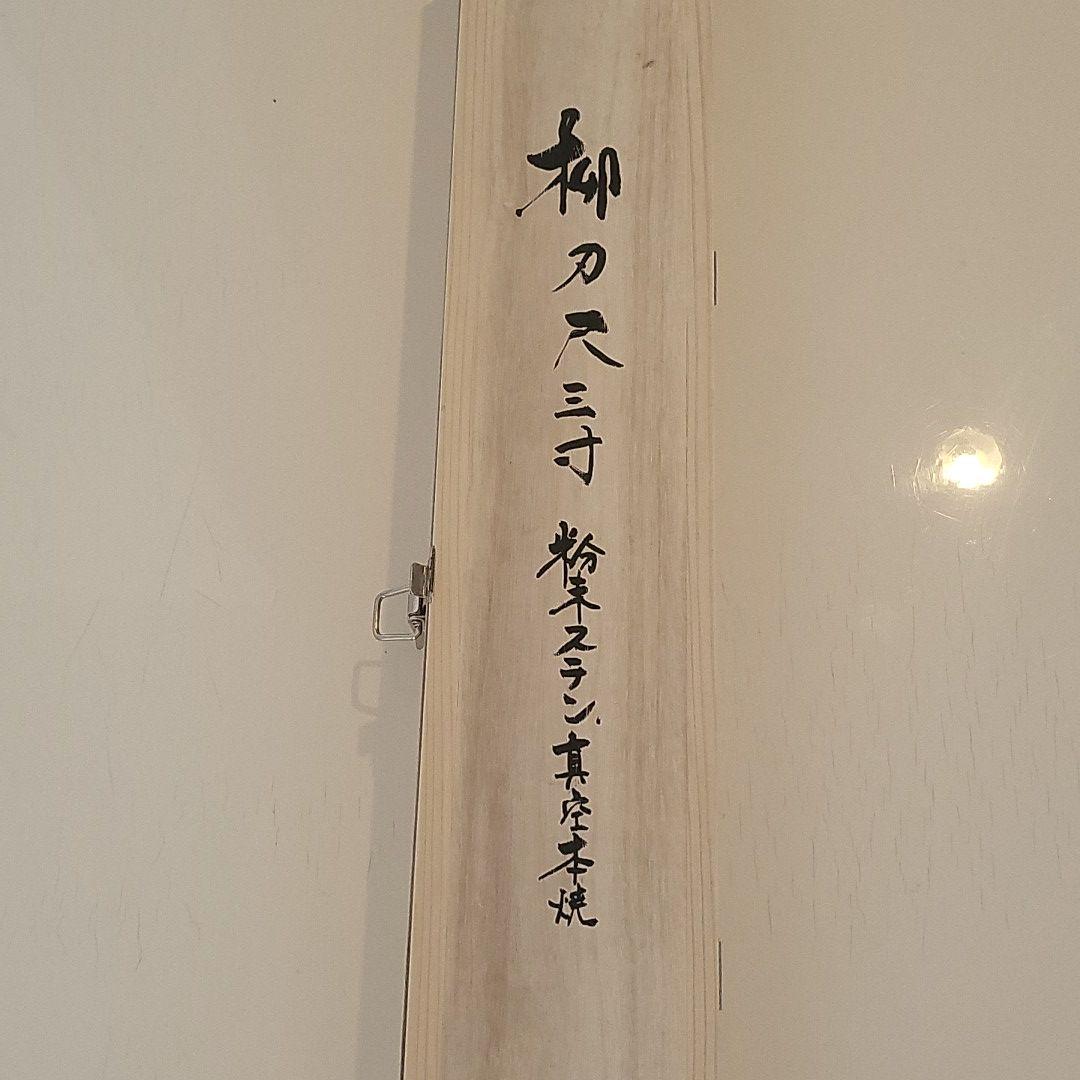 柳刃尺三寸 粉末ステン真空本焼